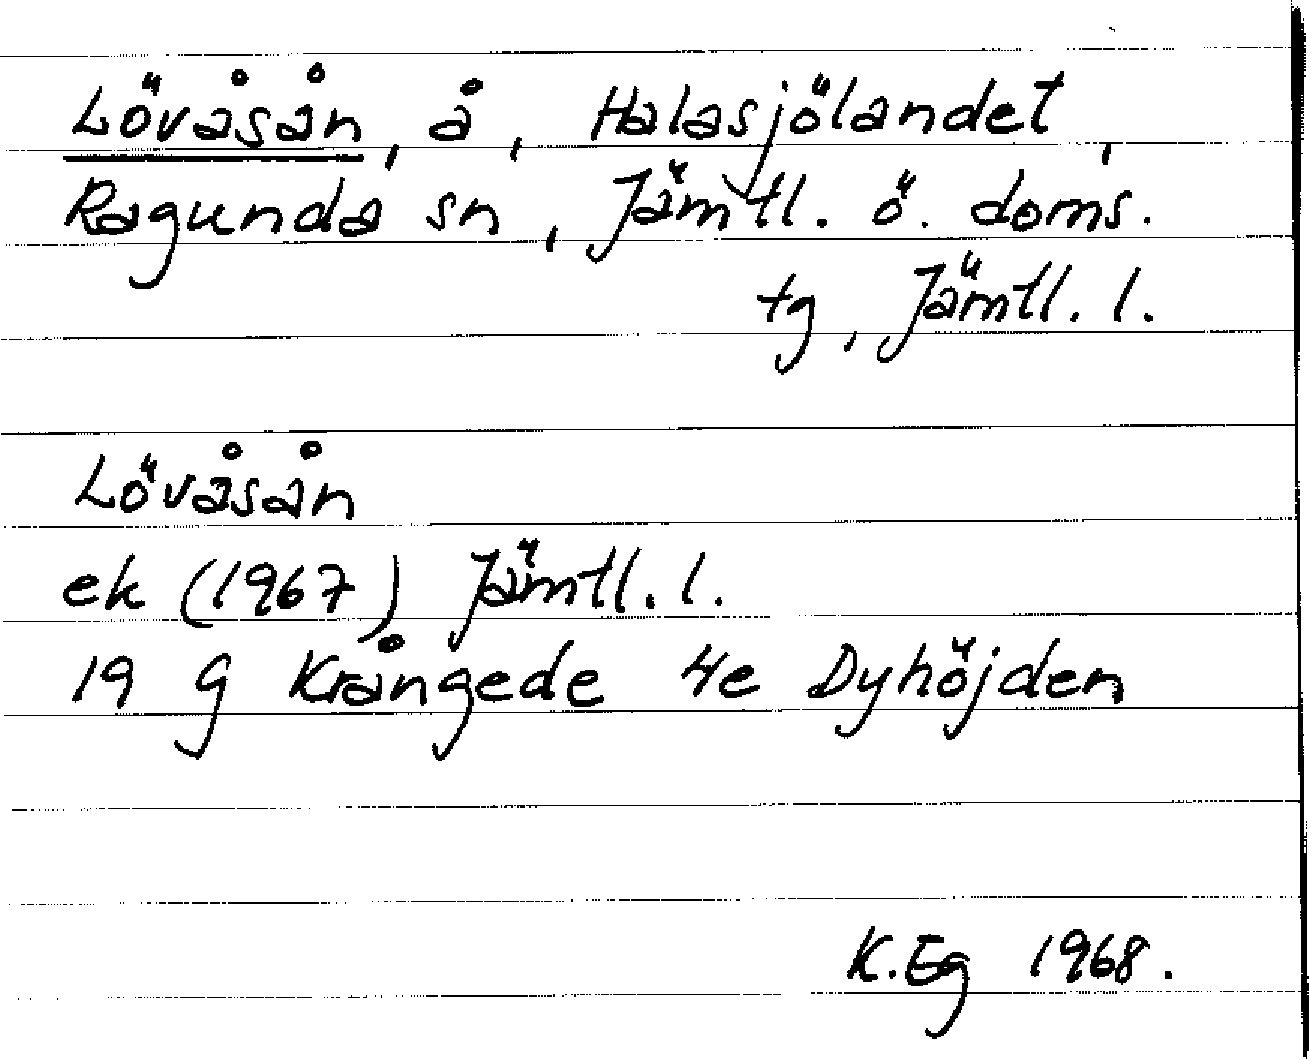 Lövåsån, å, Halasjölandet,
Ragunda sn, Jämtl. ö. doms.
tg, Jämtl. l.
Lövåsån
ek (1967) Jämtl. l.
19 G Krångede 4e Dyhöjden
K.Eg 1968.